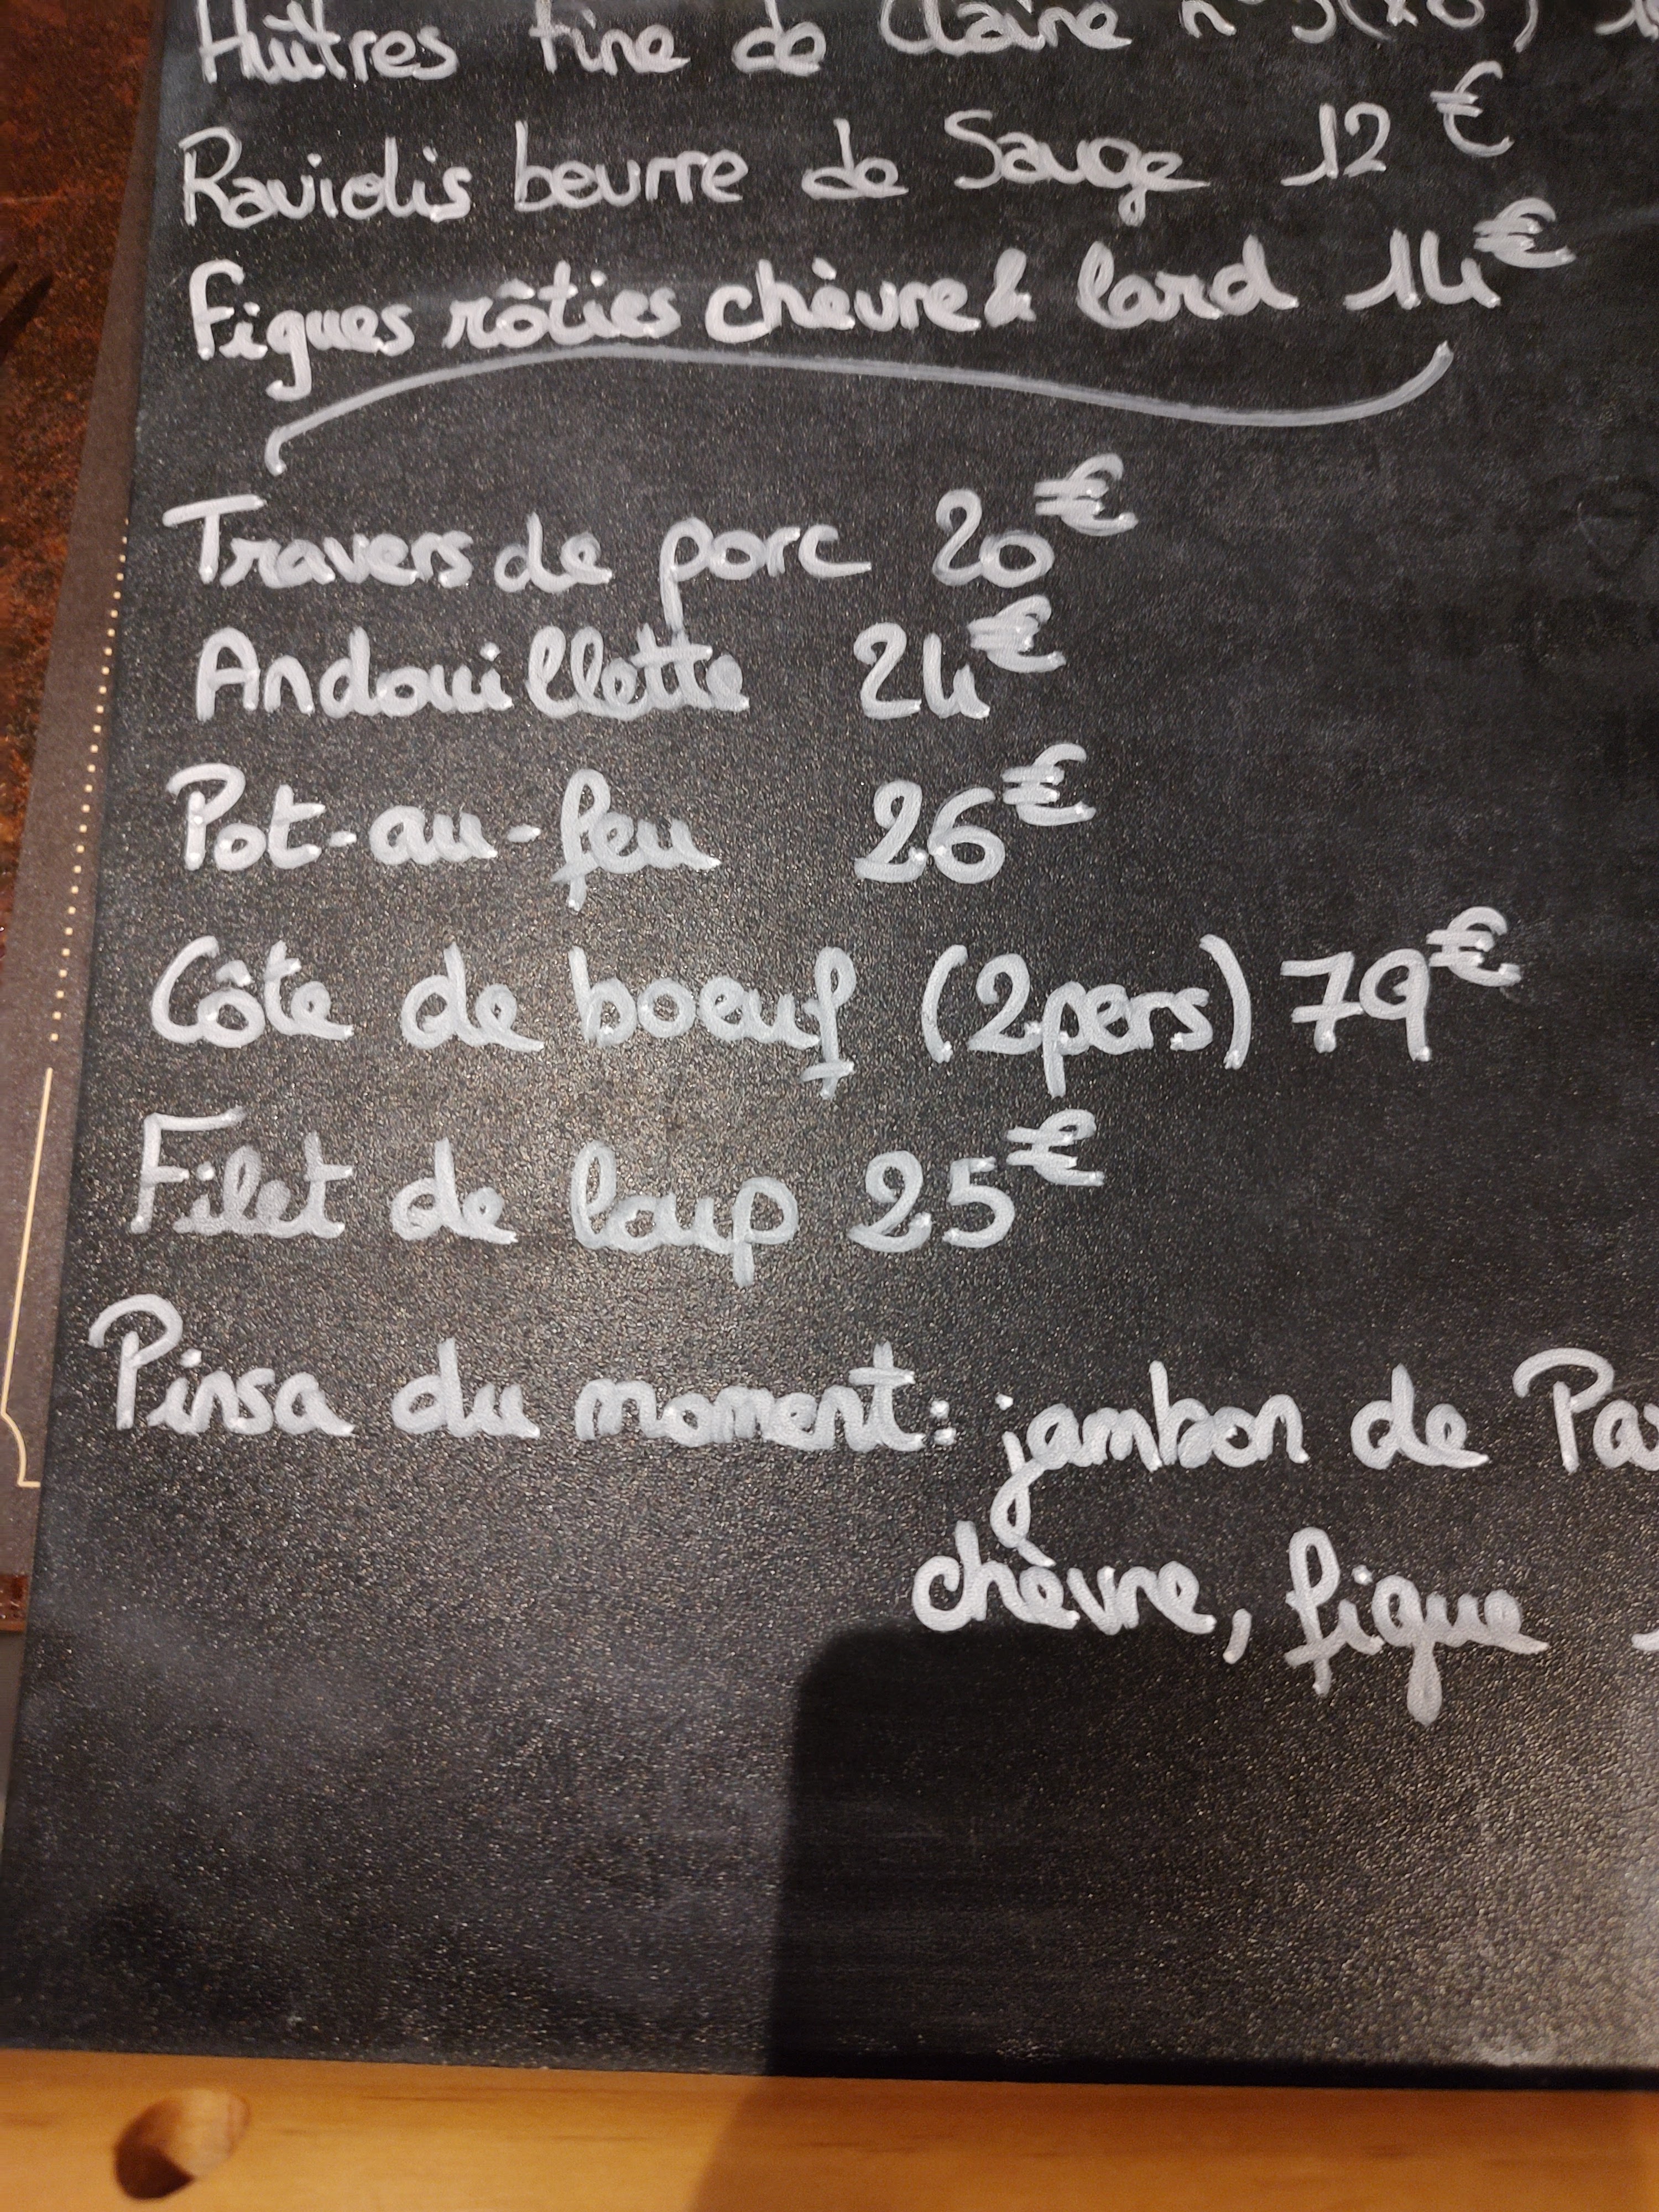 Huîtres fine de Claire n°
Raviolis beurre de Sauge 12€
Figues rôties chèvre & lard 14€
Travers de porc 20€
Andouillette 24€
Pot-au-feu 26€
Côte de boeuf (2pers) 79€
Filet de loup 25€
Pinsa du moment: jambon de
chèvre, figue